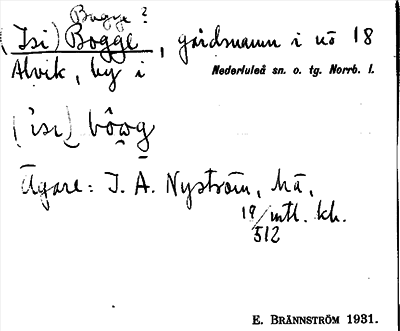 Bugge ?
(Isi) Bogge, gårdsnamn i nö 18
Alvik, by i Nederluleå sn. o. tg. Norrb. l.
('isi) bôwg
Ägare: J. A. Nyström, hä,
19/512 mtl. kh.
E. BRÄNNSTRÖM 1931.